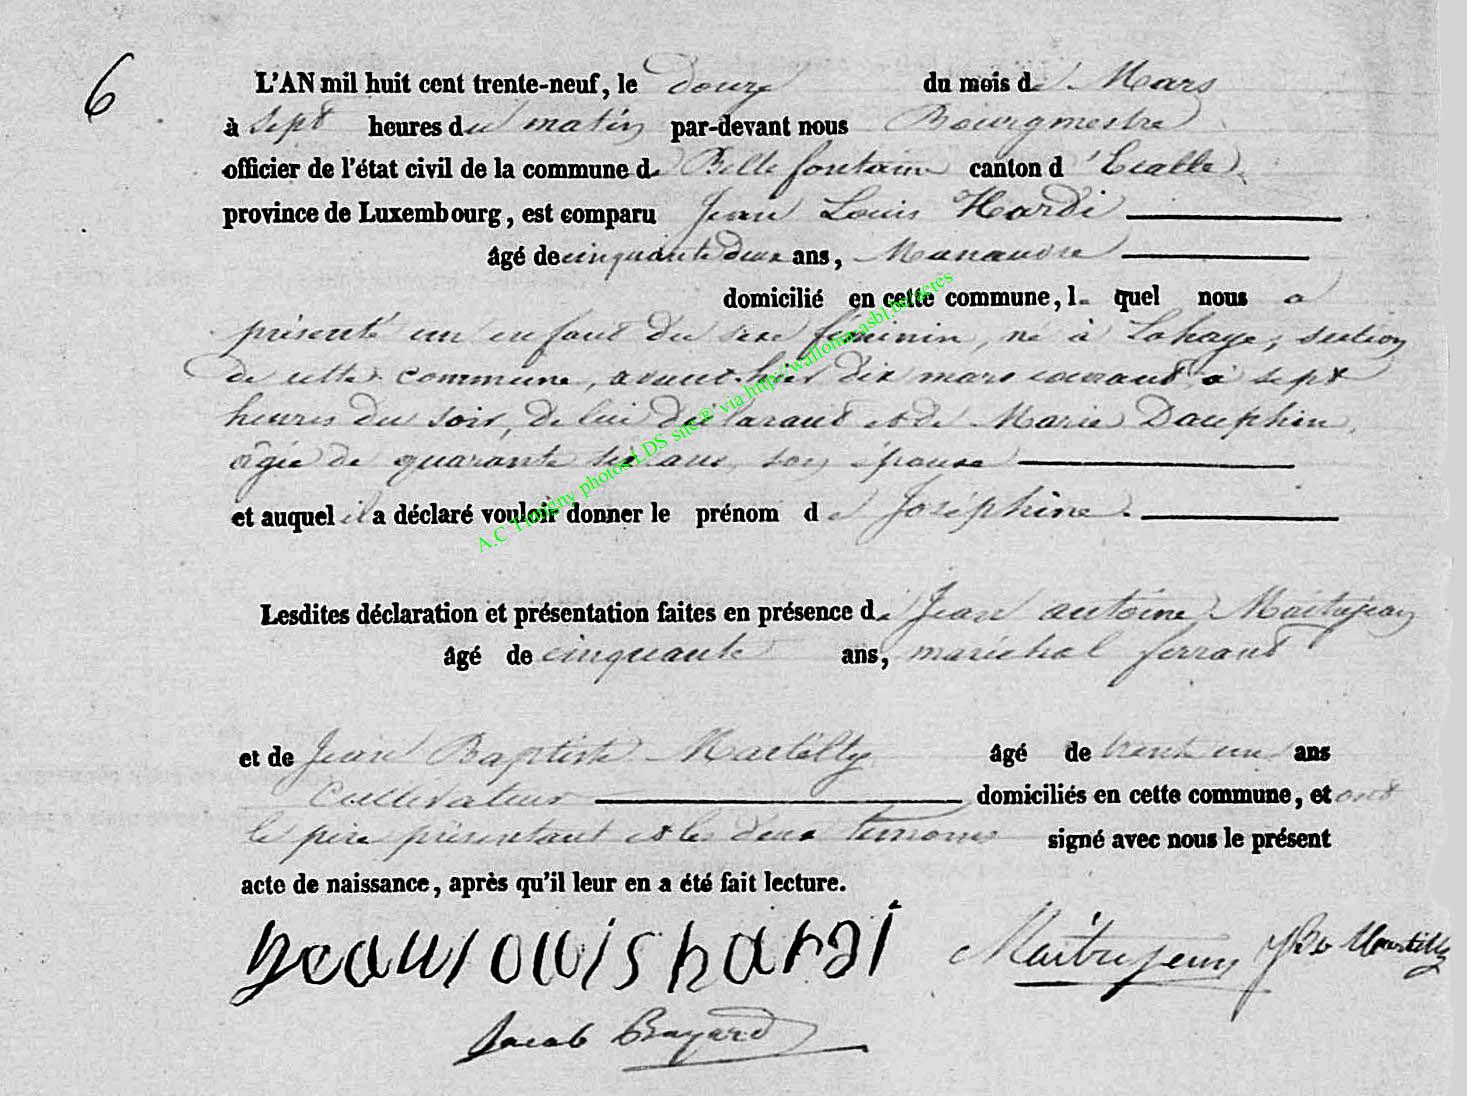 6
L'AN mil huit cent trente-neuf, le douze du mois de Mars
à sept heures du matin par-devant nous Bourgmestre
officier de l'état civil de la commune de Bellefontaine canton d'Etalle
province de Luxembourg, est comparu Jean Louis Hardi
âgé de cinquante deux ans, Manœuvre
domicilié en cette commune, lequel nous a
présenté un enfant du sexe féminin, né à Lahage, section
de cette commune, avant-hier dix mars courant à sept
heures du soir, de lui déclarant et de Marie Dauphin,
âgée de quarante ans, son épouse
et auquel il a déclaré vouloir donner le prénom de Joséphine.
Lesdites déclaration et présentation faites en présence de Jean antoine Maitrejean
âgé de cinquante ans, maréchal ferrant
et de Jean Baptiste Martilly âgé de trente un ans
Cultivateur domiciliés en cette commune, et ont
le père présentant et les deux temoins signé avec nous le présent
acte de naissance, après qu'il leur en a été fait lecture.
jean louis hardi Maitrejean JBte Martilly
Jacob Bayard
A.C Tintigny photos LDS site® via http://wallonia-asbl.be/actes